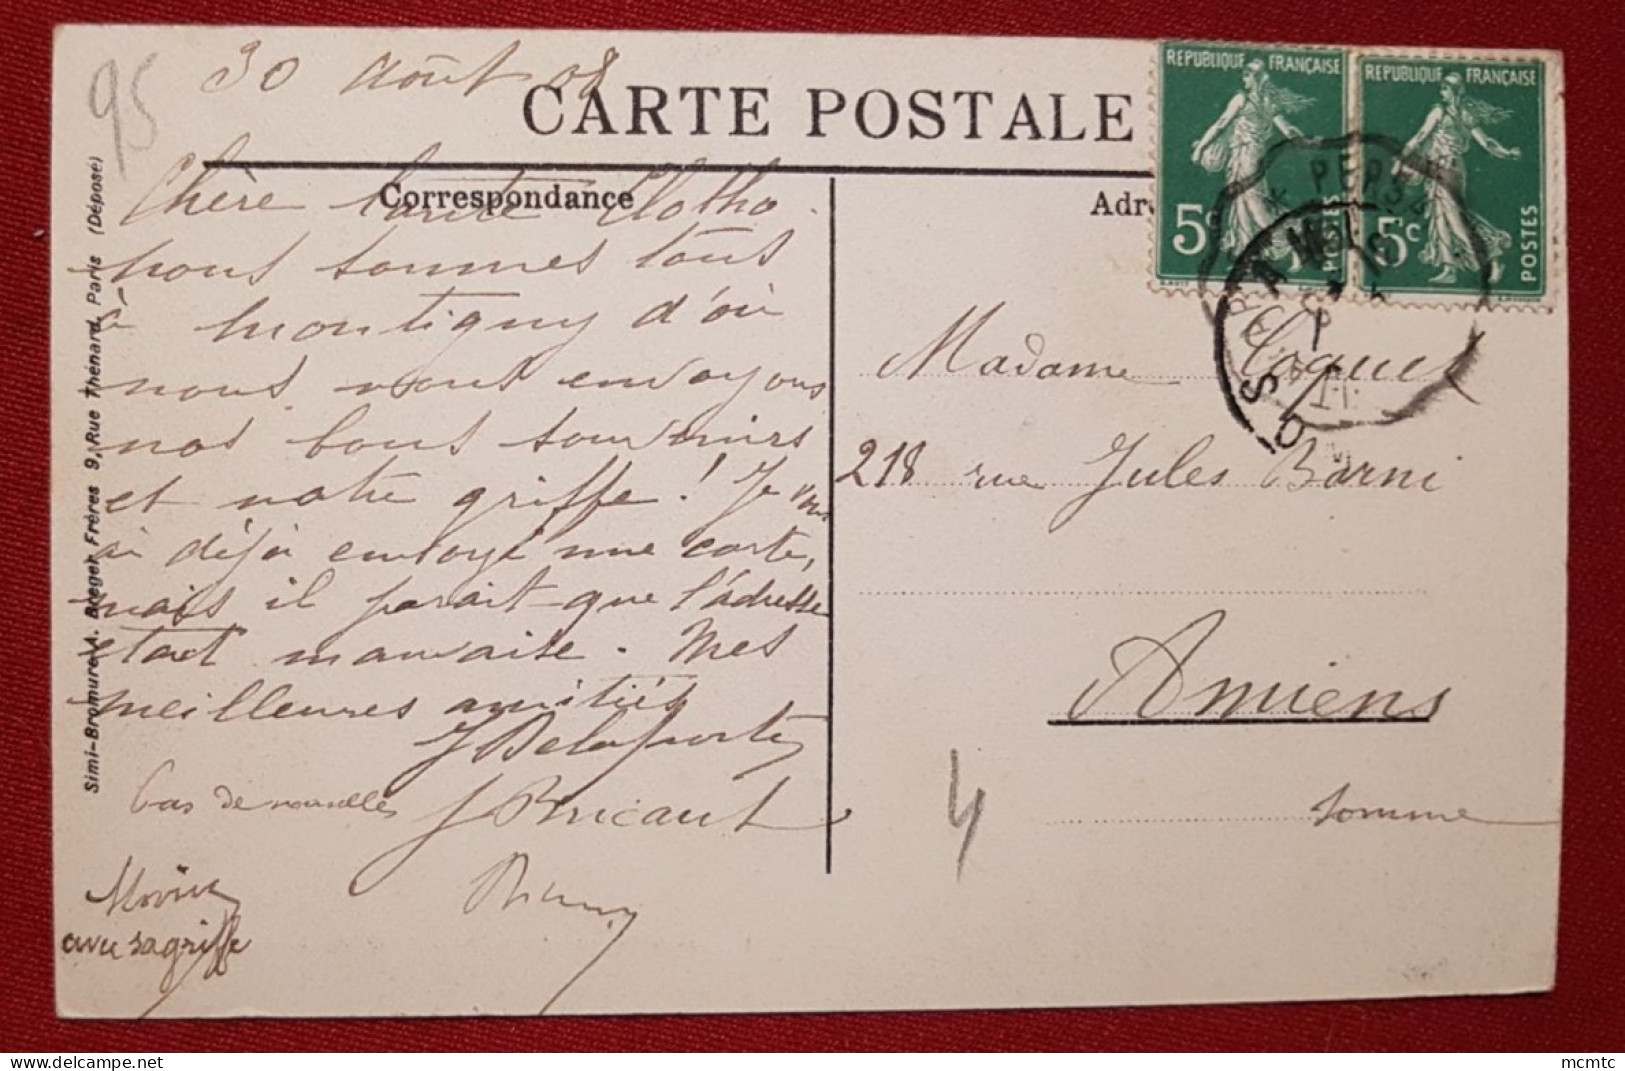 95
30 Août 08
CARTE POSTALE
Correspondance
Chère tante Clotho.
nous sommes tous
à Montigny d'où
nous vous envoyons
nos bons souvenirs
et notre griffe! Je vous
ai déjà envoyé une carte,
mais il parait que l'adresse
etait mauvaise. Mes
meilleures amitiés
J Delaporte
Pas de nouvelles
J Bricaut
avec sa griffe
Simi-Bromure A. Breger Frères 9, Rue Thénard, Paris (Déposé)
RÉPUBLIQUE FRANÇAISE
5c
POSTES
RÉPUBLIQUE FRANÇAISE
5c
POSTES
Madame Coquet
218 rue Jules Barni
Amiens
Somme
4
mcmtc